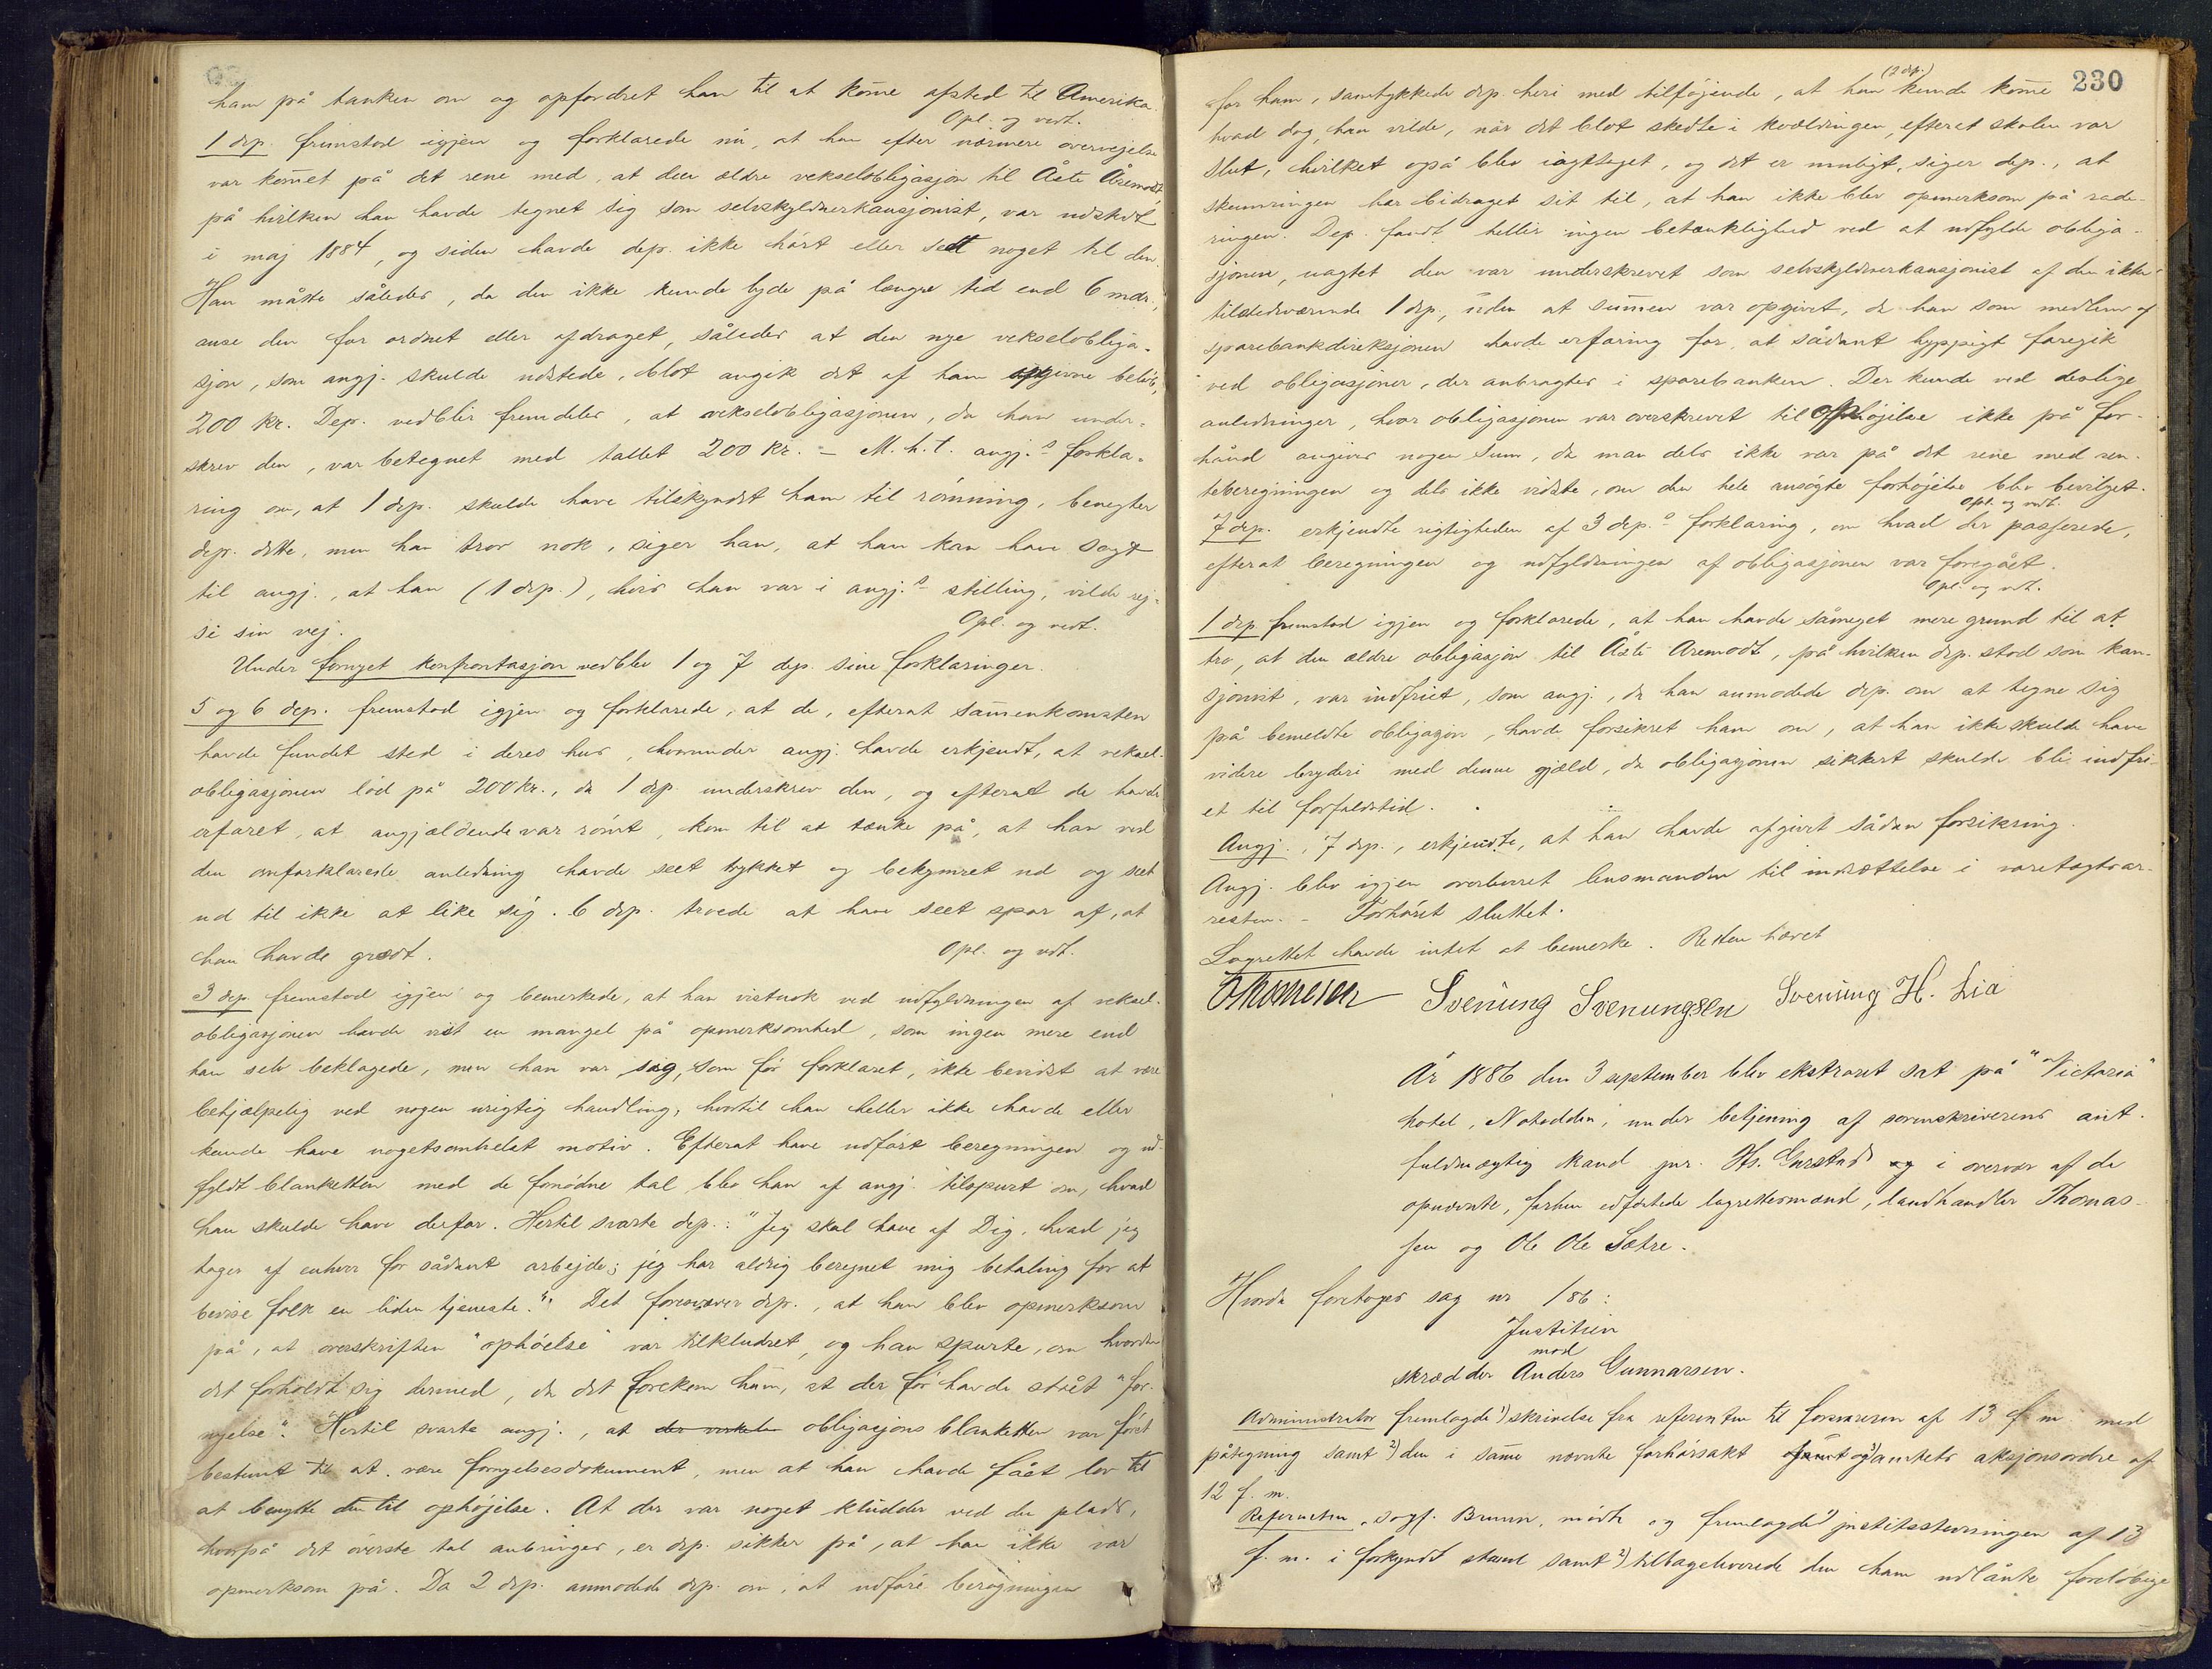 ham på tanken om og opfordret ham til at kom̄e afsted til Amerika.
Opl. og vedt.
1 dep. fremstod igjen og forklarede nu, at han efter nærmere overvejelse
var kom̄et på det rene med, at den ældre vekselobligasjon til Åste Åremodt
på hvilken han havde tegnet sig som selvskyldnerkausjonist, var udstedt
i maj 1884, og siden havde dep. ikke hørt eller sett noget til den.
Han måtte således, da den ikke kunde lyde på længre tid end 6 mdr.,
anse den for ordnet eller afdraget, således at den nye vekselobliga-
sjon, som angj. skulde udstede, blot angik det af ham opgivne beløb,
200 kr. Dep. vedblir fremdeles, at vekselobligasjonen, da han under-
skrev den, var betegnet med tallet 200 kr. – M. h. t. angj.s forkla-
ring om, at 1 dep. skulde have tilskyndet ham til rømning, benegter
dep. dette, men han tror nok, siger han, at han kan have sagt
til angj., at han (1 dep.), hvis han var i angj.s stilling, vilde rej-
se sin vej.
Opl. og vedt.
Under fornyet konfrontasjon vedblev 1 og 7 dep. sine forklaringer.
5 og 6 dep. fremstod igjen og forklarede, at de, efterat sam̄enkomsten
havde fundet sted i deres hus, hvorunder angj. havde erkjendt, at veksel-
obligasjonen lød på 200 kr., da 1 dep. underskrev den, og efterat de havde
erfaret, at angjældende var rømt, kom til at tænke på, at han ved
den omforklarede anledning havde seet trykket og bekymret ud og seet
ud til ikke at like sig. 6 dep. troede at have seet spor af, at
han havde grædt.
Opl. og vdt.
3 dep. fremstod igjen og bemerkede, at han vistnok ved udfyldningen af veksel-
obligasjonen havde vist en mangel på opmerksomhed, som ingen mere end
han selv beklagede, men han var sig, som før forklaret, ikke bevidst at være
behjælpelig ved nogen urigtig handling, hvortil han heller ikke havde eller
kunde have nogetsomhelst motiv. Efterat have udført beregningen og ud-
fyldt blanketten med de fornødne tal blev han af angj. tilspurt om, hvad
han skulde have derfor. Hertil svarte dep.: "Jeg skal have af Dig, hvad jeg
tager af enhver for sådant arbejde; jeg har aldrig beregnet mig betaling for at
bevise folk en liden tjeneste." Det foresvæver dep., at han blev opmerksom
på, at overskriften "ophøielse" var tilkludret, og han spurte, om hvordan
det forholdt sig dermed, da det forekom ham, at der før havde stået "for-
nyelse". Hertil svarte angj., at obligasjons blanketten var først
bestemt til at være fornyelsesdokument, men at han havde fået lov til
at benytte den til ophøjelse. At der var noget kludder ved den plads,
hvorpå det øverste tal anbringes, er dep. sikker på, at han ikke var
opmerksom på. Da 2 dep. anmodede dep. om, at udføre beregningen
230
(2 dep.)
for ham, samtykkede dep. heri med tilføjende, at han kunde kom̄e
hvad dag, han vilde, når det blot skedte i kvældingen, efteret skolen var
slut, hvilket også blev iagttaget, og det er muligt, siger dep., at
skumringen har bidraget sit til, at han ikke blev opmerksom på rade-
ringen. Dep. fandt heller ingen betænklighed ved at udfylde obliga-
sjonen, uagtet den var underskrevet som selvskyldnerkausjonist af den ikke
tilstedeværende 1 dep., uden at sum̄en var opgivet, da han som medlem af
sparebankdireksjonen havde erfaring for, at sådant hyppigt foregik
ved obligasjoner, der anbragtes i sparebanken. Der kunde ved deslige
anledninger, hvor obligasjonen var overskrevet til ophøjelse ikke på for-
hånd angives nogen sum, da man dels ikke var på det rene med ren-
teberegningen og dels ikke vidste, om den hele ansøgte forhøjelse blev bevilget.
Opl. og vdt.
7 dep. erkjendte rigtigheden af 3 dep.s forklaring, om hvad der passerede,
efterat beregningen og udfyldningen af obligasjonen var foregået.
Opl. og vdt.
1 dep. fremstod igjen og forklarede, at han havde såmeget mere grund til at
tro, at den ældre obligasjon til Åste Aremodt, på hvilken dep. stod som kau-
sjonist, var indfriet, som angj., da han anmodede dep. om at tegne sig
på bemeldte obligasjon, havde forsikret ham om, at han ikke skulde have
videre bryderi med denne gjæld, da obligasjonen sikkert skulde bli indfri-
et til forfaldstid.
Angj., 7 dep., erkjendte, at han havde afgivet sådan forsikring.
Angj. blev igjen overleveret lensmanden til indsættelse i varetægtsar-
resten. – Forhøret sluttet.
Lagrettet havde intet at bemerke. Retten hævet
Thomesen Svenung Svenungsen Svenung H. Lia
År 1886 den 3 september blev ekstraret sat på "Victoria"
hotel, Notodden, under betjening af sorenskriverens aut.
fuldmægtig kand. jur. Hs. Gurstad og i overvær af de
opnævnte, forhen edfæstede lagrettesmænd, landhandler Thomas-
sen og Ole Ole Sætre.
Hvorda foretoges sag nr 1/86:
Justitien
mod
skrædder Anders Gunnarsen.
Administrator fremlagde 1) skrivelse fra referenten til forsvareren af 13 f. m. med
påtegning samt 2) den i sam̄e nævnte forhørsakt og 3) amtets aksjonsordre af
12 f. m.
Referenten, sagf. Bruun, mødte og fremlagde 1) justitsstevningen af 13
f. m. i forkyndt stand samt 2) tilbageleverede den ham udlånte foreløbige